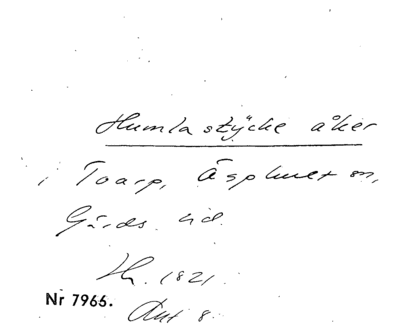 Humlastycke åker
i Toarp, Äsphult sn,
Gärds hd.
Lh. 1821.
Nr 7965.
Akt 8.